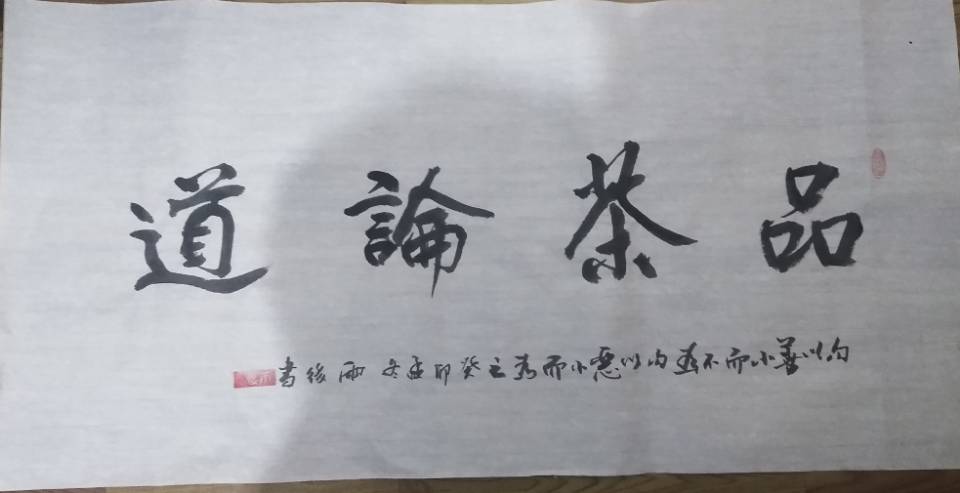 品茶論道
勿以善小而不為勿以惡小而為之癸卯孟冬雨後書